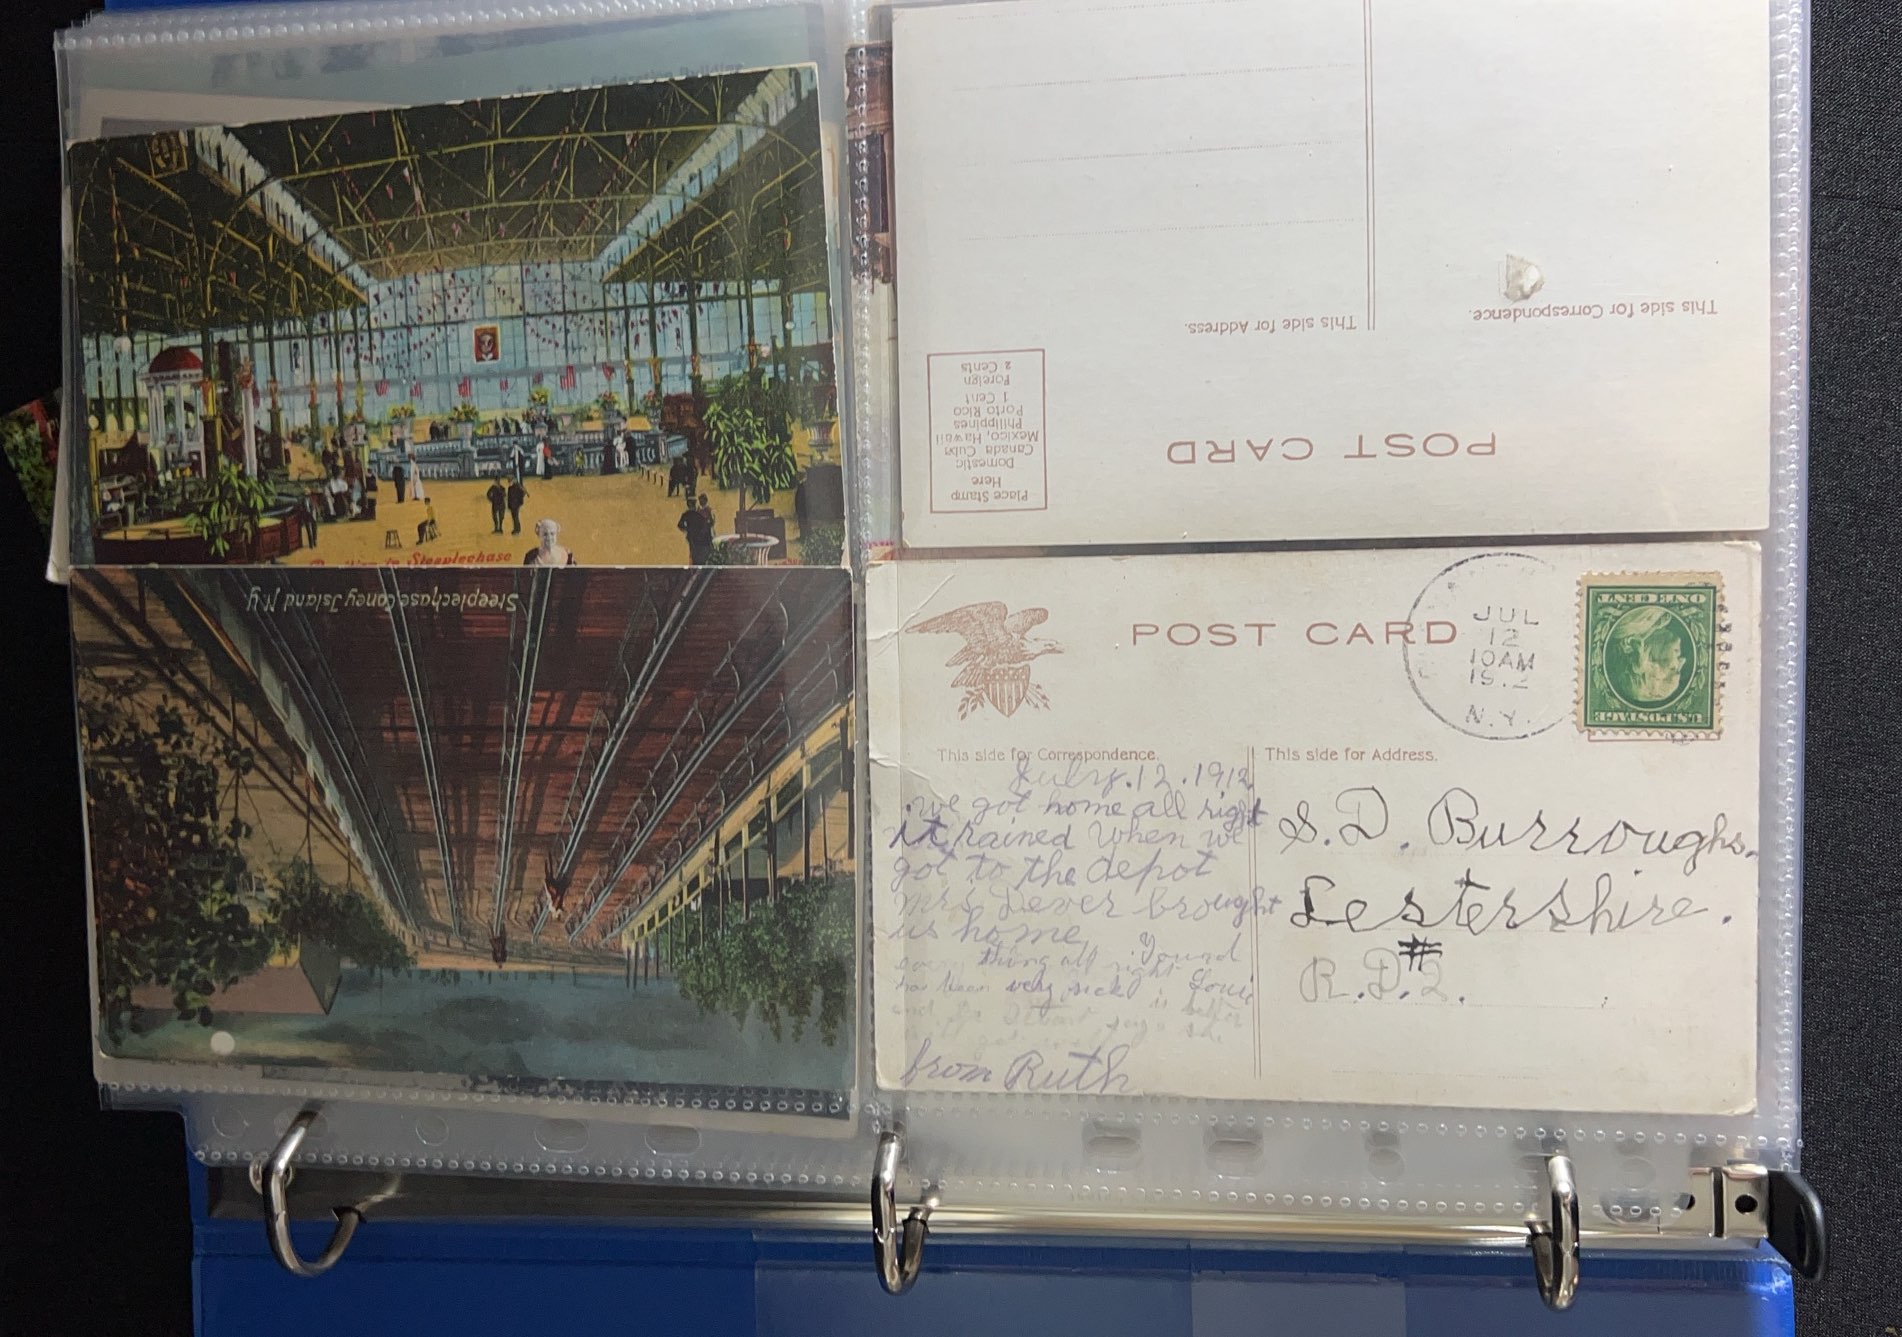 Steeplechase
Steeplechase Coney Island N.Y.
POST CARD
Place Stamp
Here
Domestic
Canada Cuba
Mexico, Hawaii
Philippines
Porto Rico
1 Cent
Foreign
2 Cents
This side for Correspondence.
This side for Address.
POST CARD
JUL
12
10AM
N.Y.
U.S. POSTAGE
ONE CENT
This side for Correspondence.
This side for Address.
July. 12. 1912
we got home all right
it rained when we
got to the depot
Mrs Dever brought
us home
thing all right
has been very sick
is better
from Ruth
S. D. Burroughs.
Lestershire.
#
R.D.2.